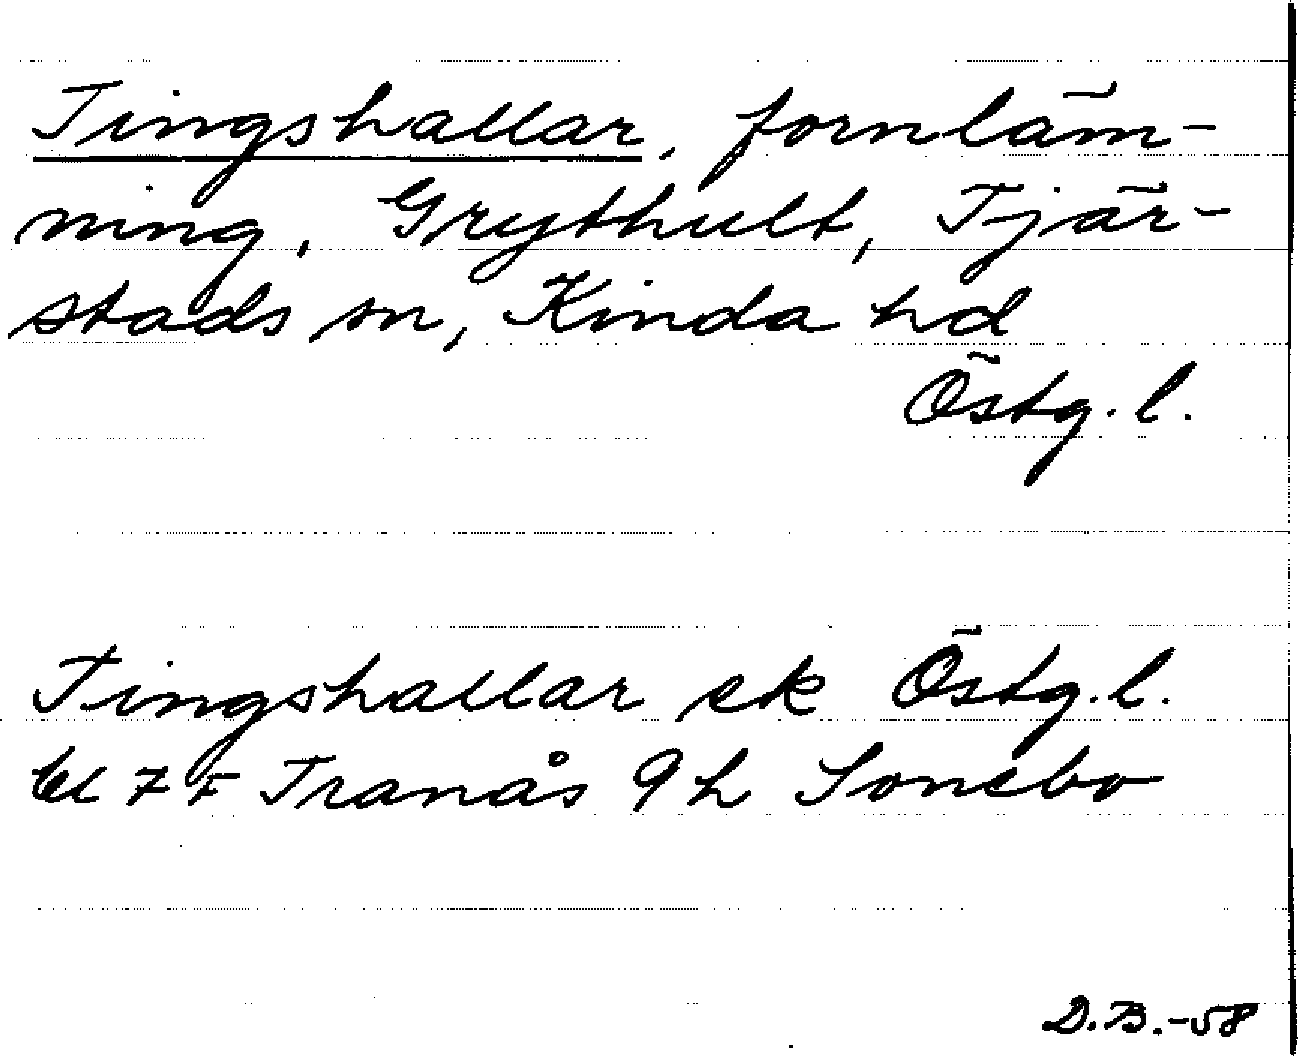 Tingshallar, fornläm-
ning, Grythult, Tjär-
stads sn, Kinda hd
Östg. l.
Tingshallar ek Östg. l.
bl 7 F Tranås 9 h Sonebo
D.B.-58